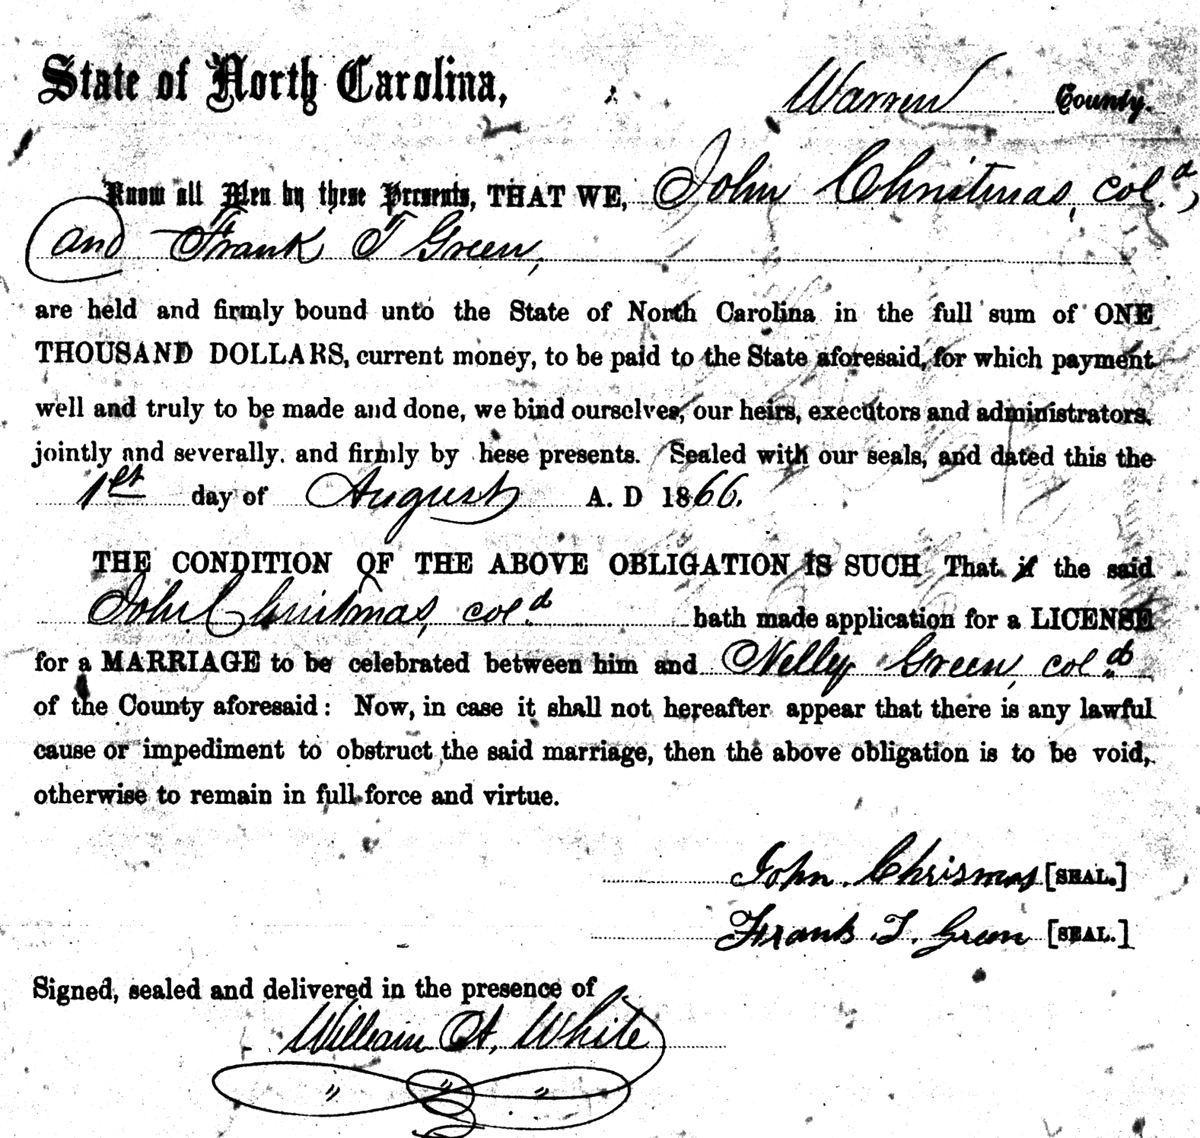 State of North Carolina, Warren County.
Know all Men by these Presents, THAT WE, John Christmas, col.d,
and Frank T Green,
are held and firmly bound unto the State of North Carolina in the full sum of ONE
THOUSAND DOLLARS, current money, to be paid to the State aforesaid, for which payment
well and truly to be made and done, we bind ourselves, our heirs, executors and administrators,
jointly and severally. and firmly by hese presents. Sealed with our seals, and dated this the
1st day of August A. D 1866.
THE CONDITION OF THE ABOVE OBLIGATION IS SUCH That if the said
John Christmas, col.d hath made application for a LICENSE
for a MARRIAGE to be celebrated between him and Nelly Green, col.d
of the County aforesaid: Now, in case it shall not hereafter appear that there is any lawful
cause or impediment to obstruct the said marriage, then the above obligation is to be void,
otherwise to remain in full force and virtue.
John Chrismas [SEAL.]
Frank T. Green [SEAL.]
Signed, sealed and delivered in the presence of
William A. White